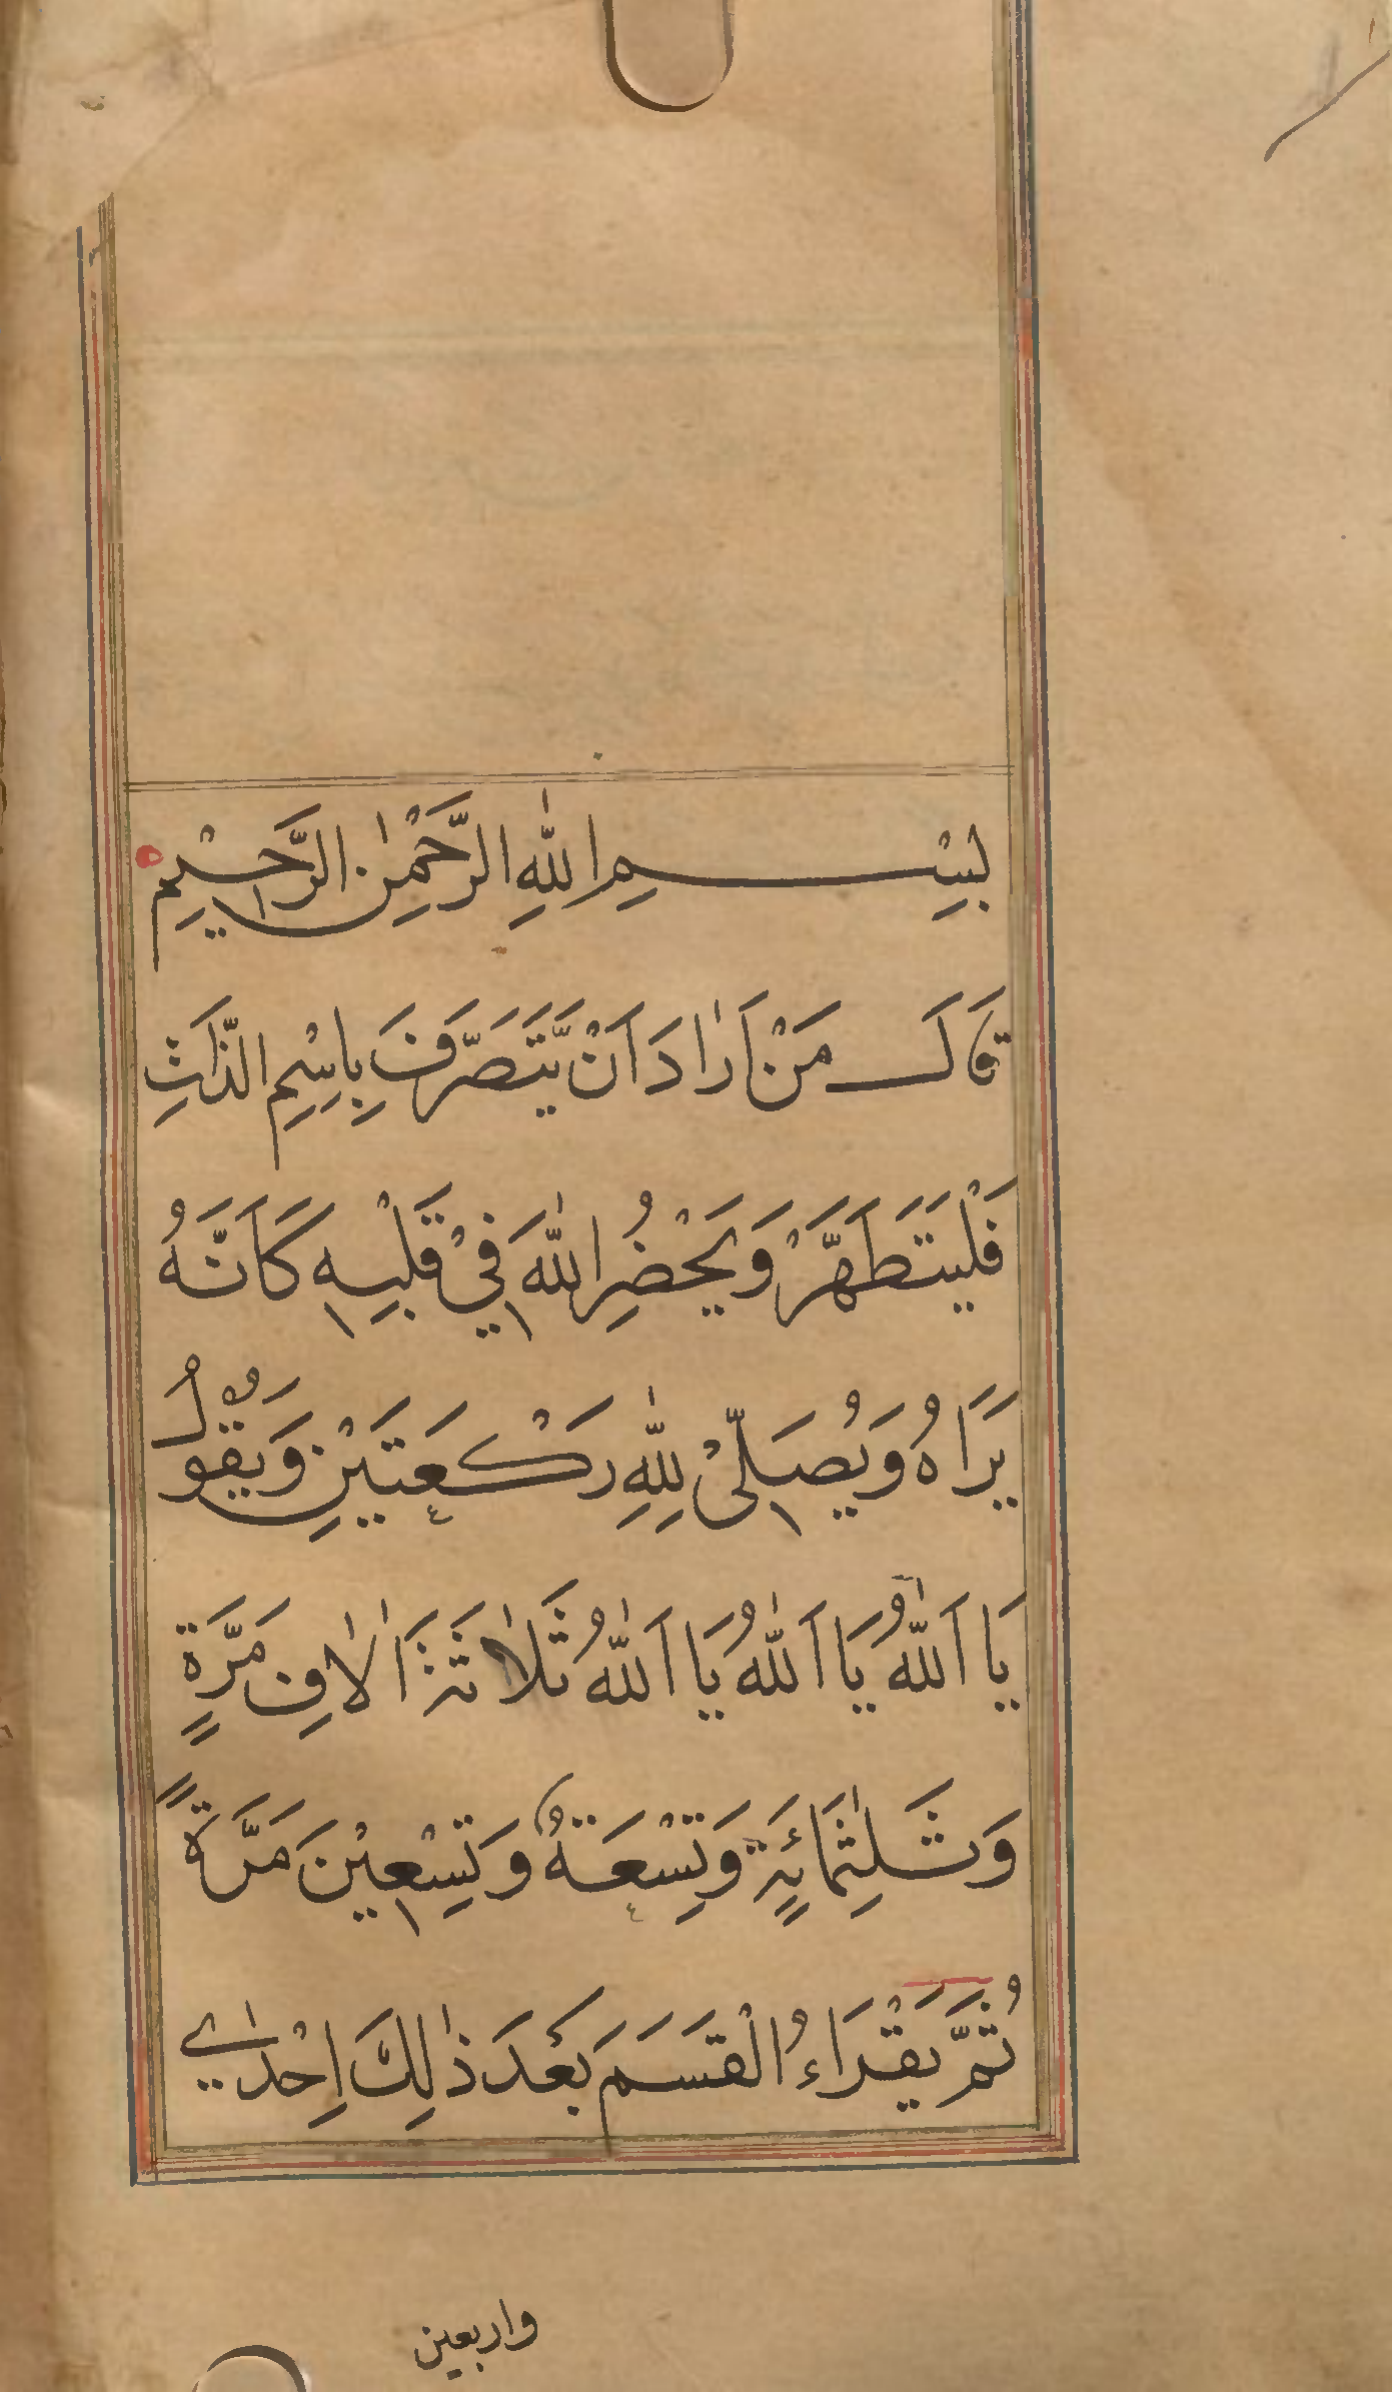 بِسْــــمِ اللّٰهِ الرَّحْمٰنِ الرَّحِيْمِ
قَالَ مَنْ اَرَادَ اَنْ يَّتَصَرَّفَ بِاِسْمِ الذَّاتِ
فَلْيَتَطَهَّرْ وَيَحْضُرِ اللّٰهَ فِيْ قَلْبِهٖ كَاَنَّهُ
يَرَاهُ وَيُصَلِّيْ لِلّٰهِ رَكْعَتَيْنِ وَيَقُوْلُ
يَا اَللّٰهُ يَا اَللّٰهُ يَا اَللّٰهُ ثَلٰاثَةَ اٰلٰافِ مَرَّةٍ
وَثَلٰثِمَائَةٍ وَتِسْعَةٌ وَتِسْعِيْنَ مَرَّةً
ثُمَّ يَقْرَاءُ الْقَسَمَ بَعْدَ ذٰلِكَ اِحْدٰي
واربعين